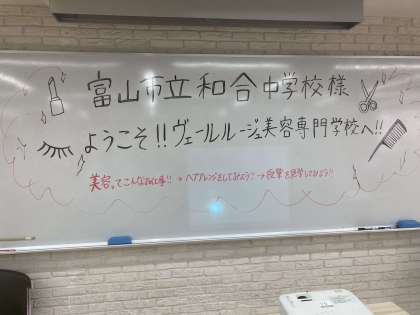 富山市立和合中学校様
ようこそ!!ヴェールルージュ美容専門学校へ!!
美容ってこんなお仕事!! → ヘアアレンジをしてみよう! → 授業を見学してみよう!!